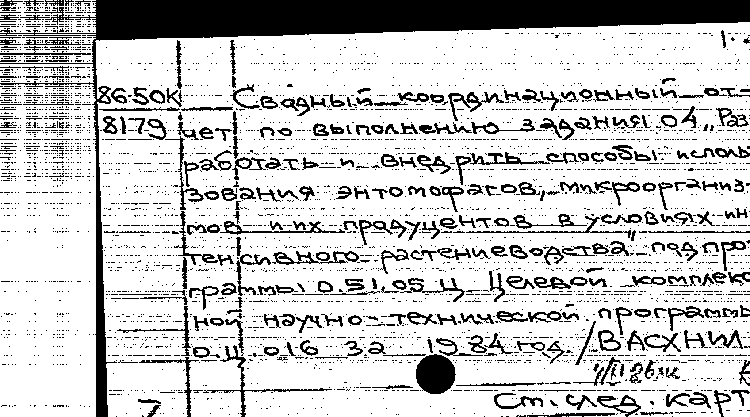 86-50К Сводный координационный от-
8179 чет по выполнению задания 04 „Раз
работать и внедрить способы исполь
зования энтомофагов, микроорганиз-
мов и их продуцентов в условиях ин
тенсивного растениеводства" подпро
граммы 0.51.05 Ц Целевой комплекс
ной научно-технической программы
О.Ц. 016 за 1984 год. / ВАСХНИЛ
См. след. карт